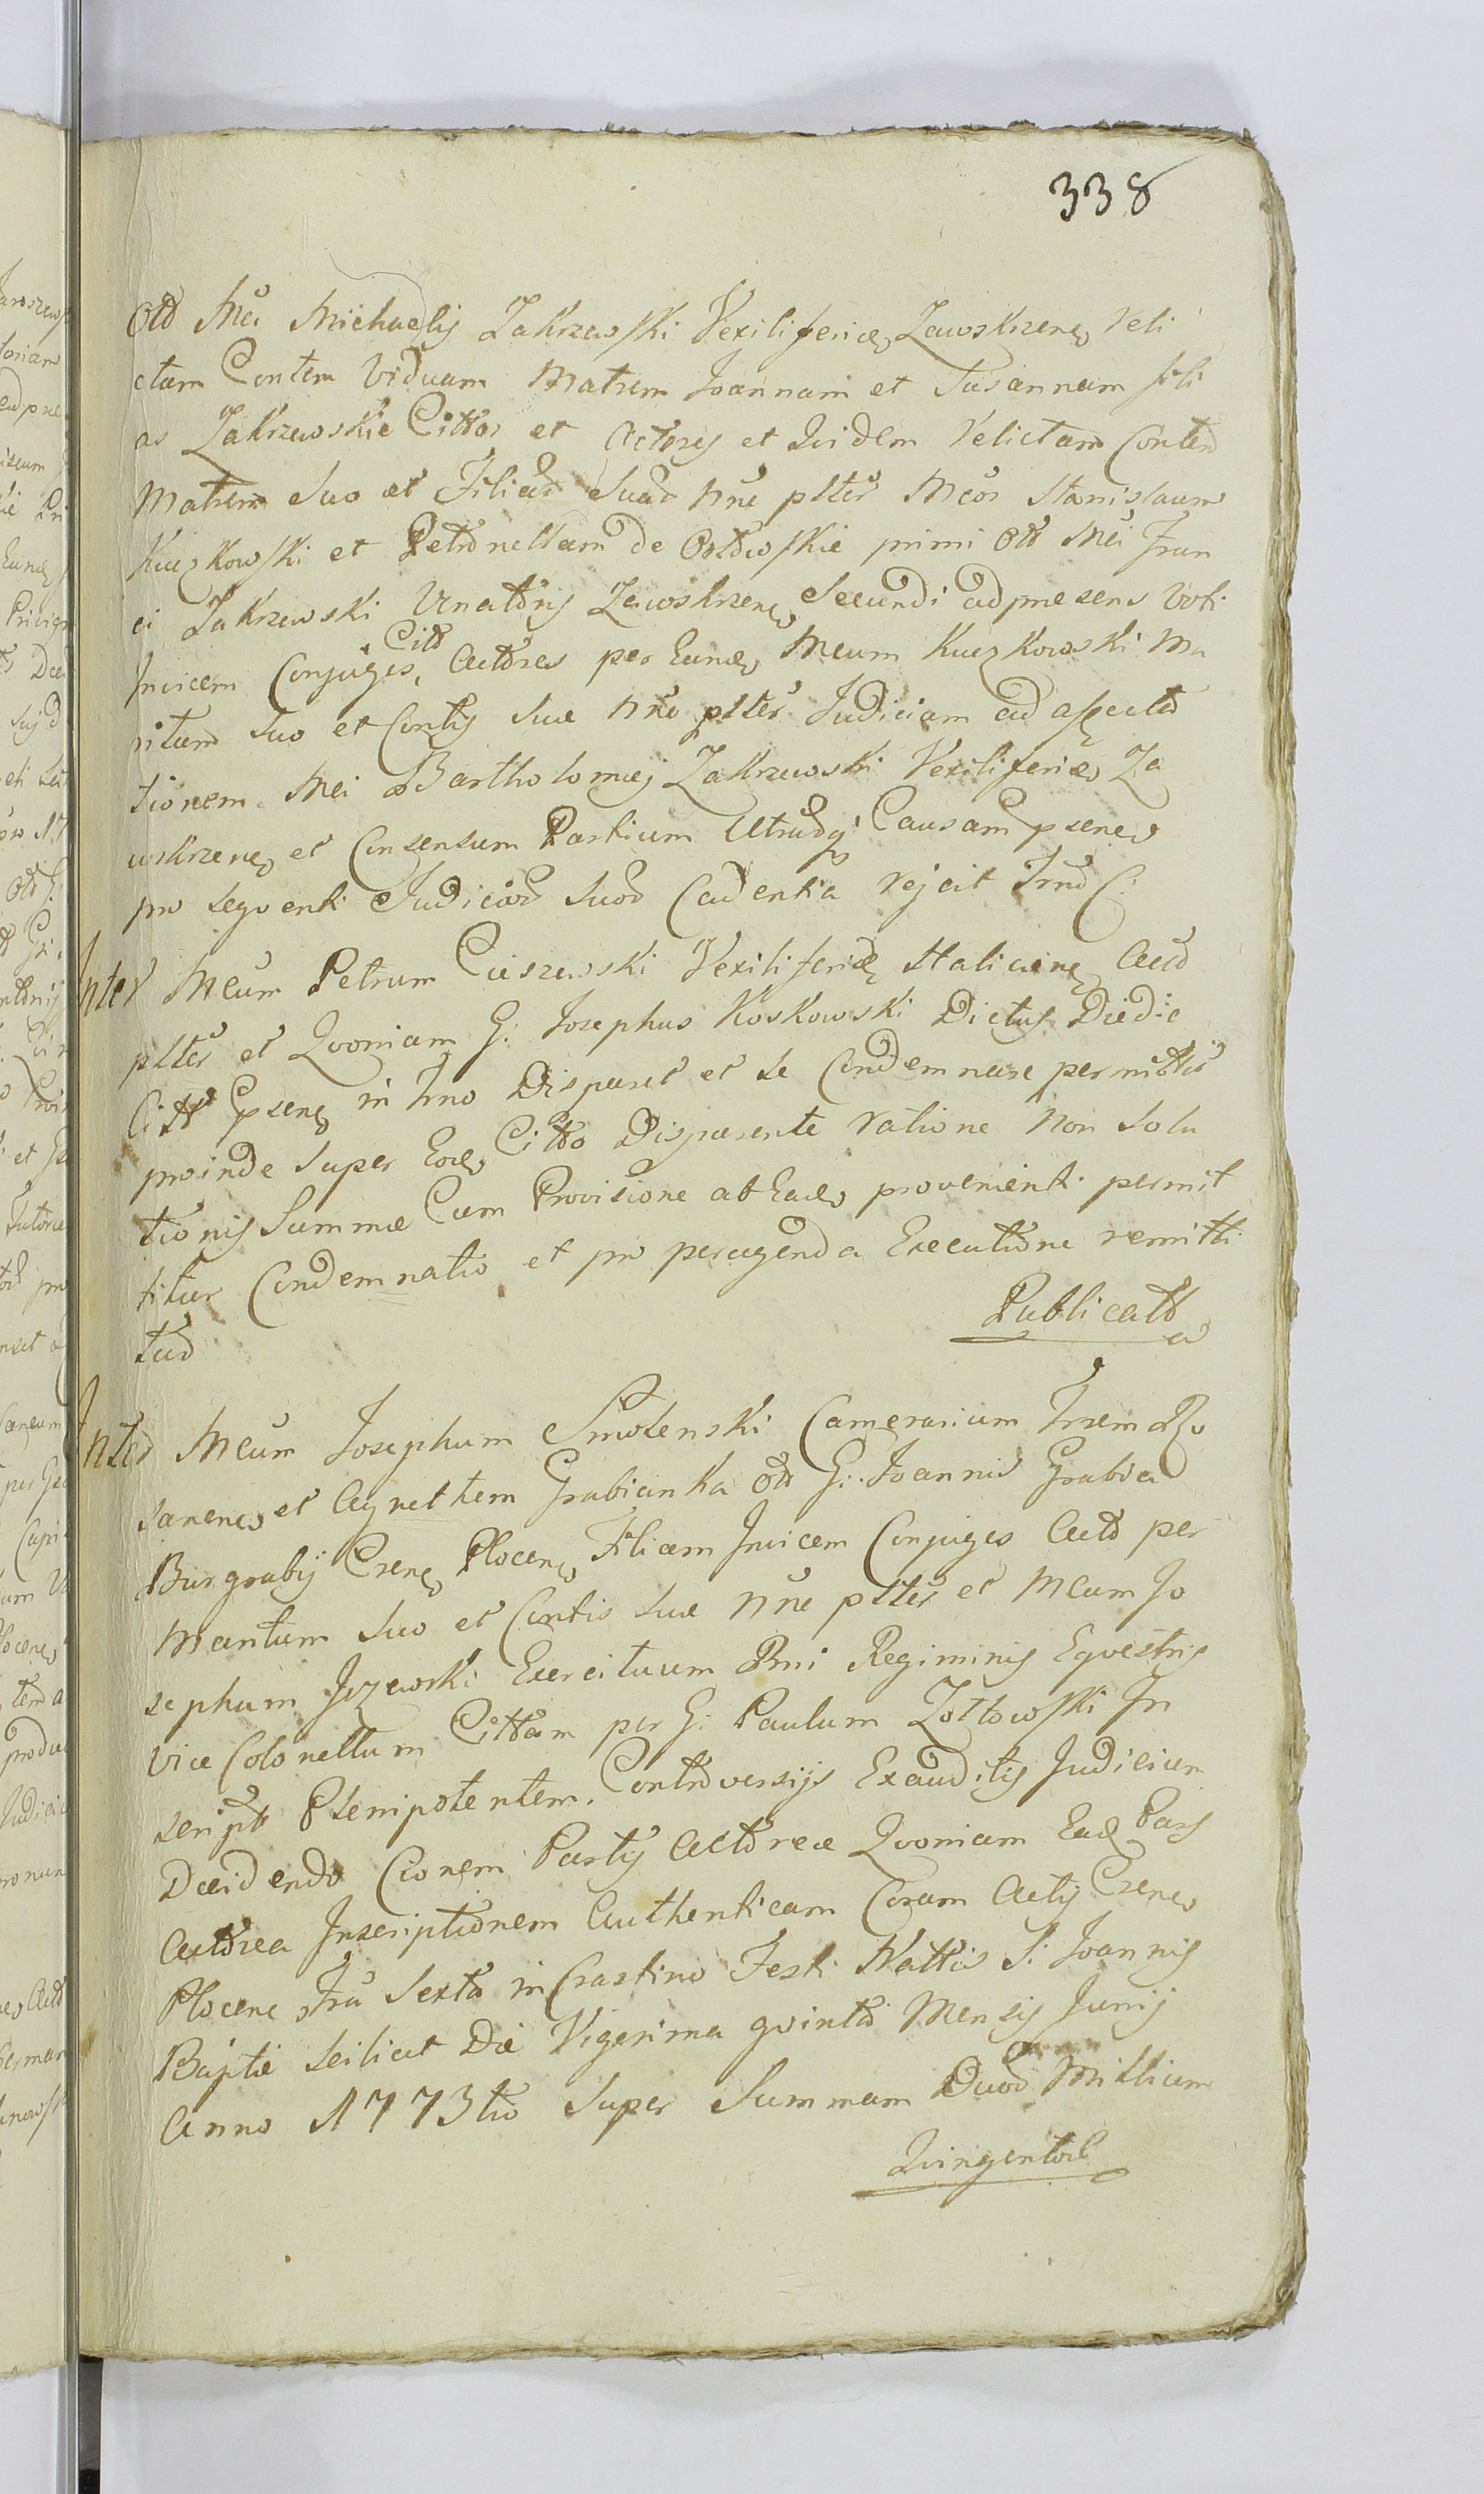 338
Olð Mci Michaelis Zakrzewski Vexiliferidę Zawskrzenę Reli
ctam Contem Viduam Matrem Joannam et Susannam fili
as Zakrzewskie Cittas et Actores et Qvidem Relictam Contem
Matrem Suo et Filiar Suar nne plter Mcos Stanislaum
Kuczkowski et Petronellam de Orłowskie primi Olð Mci Fran
ci Zakrzewski Venatoris Zawskrzenę Secundi ad præsens Voti
Citt
Invicem Conjuges, Actores per Eundę Mcum Kuczkowski Ma
ritum Suo et Contis Suæ nne plter Judicium ad affecta
tionem Mci Bartholomæj Zakrzewski Vexiliferidę Za
wskrzenę et Consensum Partium Utrarqz Causam psenę
pro seqventi Judicior Suor Cadentia rejcit Trno C:
Inter Mcum Petrum Ciszewski Vexiliferidę Halicienę Act
plter et Qvoniam G: Josephus Koskowski Dictus Diedic
Citt psenę in Trno Disparet et se Condemnare permittit
proinde super Eodę Citto Disparente ratione non Solu
tionis Summæ Cum Provisione ab Eadę provenienti permit
titur Condemnatio et pro peragenda Executione remitti
tur
Publicatt
Inter Mcum Josephum Smolenski Camerarium Trrem Ro
sanenę et Agnethem Grabianka Olð G: Joannis Grabia
Burgrabij Crenę Plocenę Filiam Invicem Conjuges Act per
Maritum Suo et Contis Suæ nne plter et Mcum Jo
sephum Jezewski Exercituum Prni Regiminis Eqvestris
Vice Colonellum Cittam per G: Paulum Zołtowski In
script Plenipotentem. Controversijs Exauditis Judicium
Decidendo Cionem Partis Actoreæ Qvoniam Eadę Pars
Actorea Inscriptionem Authenticam Coram Actis Crenę
Plocenę Fria Sexta in Crastino Festi Nattis S: Joannis
Baptæ scilicet Die Vigesima qvinta Mensis Junij
Anno 1773tio Super Summam Duor Millium
Qvingentor